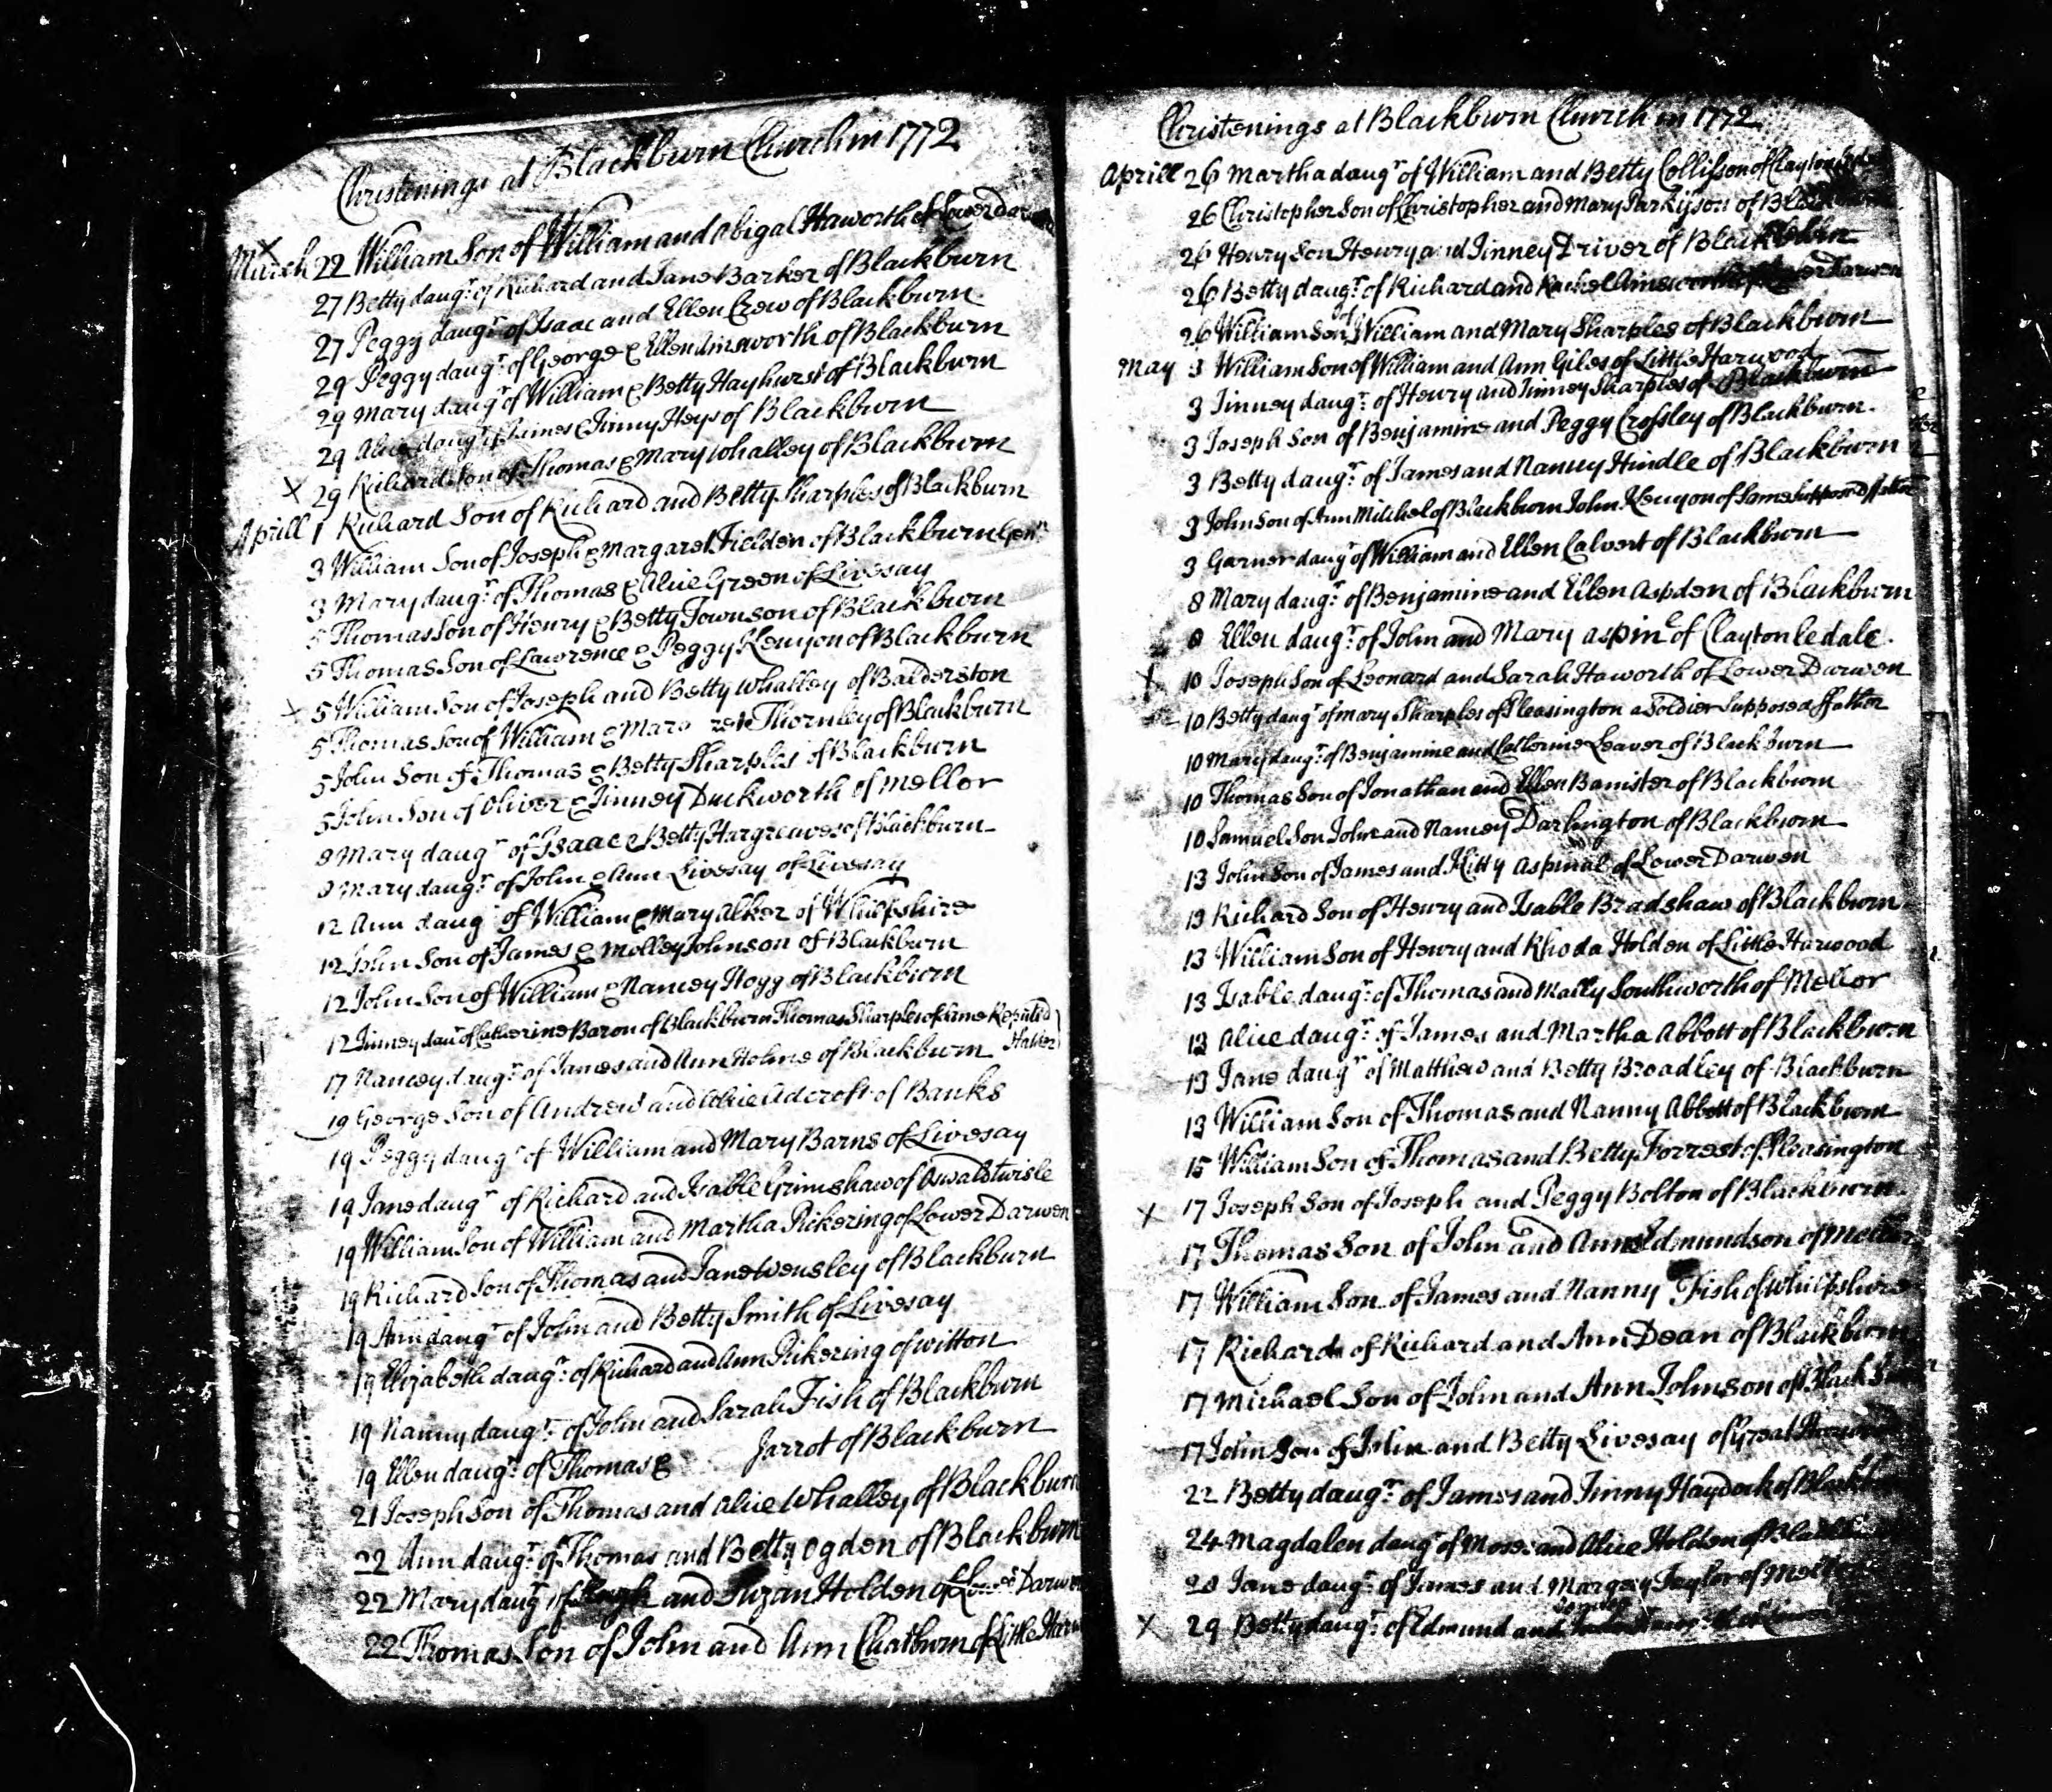 Christenings at Blackburn Church in 1772
March 22 William Son of William and Abigal Haworth of Lower Darwen
27 Betty daugr. of Richard and Jane Barker of Blackburn
27 Peggy daugr. of Isaac and Ellen Crew of Blackburn
29 Peggy daugr. of George & Ellen Ainsworth of Blackburn
29 Mary daugr of William & Betty Hayhurst of Blackburn
29 Alice daugr of James & Jinny Heys of Blackburn
X 29 Richard Son of Thomas & Mary Whalley of Blackburn
Aprill 1 Richard Son of Richard and Betty Sharples of Blackburn
3 William Son of Joseph & Margaret Fielden of Blackburn Gent
3 Mary daugr. of Thomas & Alice Green of Livesay
5 Thomas Son of Henry & Betty Townson of Blackburn
5 Thomas Son of Lawrence & Peggy Kenyon of Blackburn
X 5 William Son of Joseph and Betty Whalley of Balderston
5 Thomas Son of William & Mar ret Thornley of Blackburn
5 John Son of Thomas & Betty Sharples of Blackburn
5 John Son of Oliver & Jinney Duckworth of Mellor
8 Mary daugr of Isaac & Betty Hargreaves of Blackburn
9 Mary daugr. of John & Ann Livesay of Livesay
12 Ann daugr of William & Mary Alker of Whilpshire
12 John Son of James & Molley Johnson of Blackburn
12 John Son of William & Nancey Hogg of Blackburn
12 Jinney daur of Catherine Baron of Blackburn Thomas Sharples of same Reputed
Father
17 Nancey daugr. of James and Ann Holme of Blackburn
19 George Son of Andrew and Alice Adcroft of Banks
19 Peggy daugr of William and Mary Barns of Livesay
19 Jane daugr of Richard and Isable Grimshaw of Oswaldtwisle
19 William Son of William and Martha Pickering of Lower Darwen
19 Richard Son of Thomas and Jane Wensley of Blackburn
19 Ann daugr of John and Betty Smith of Livesay
19 Elizabeth daugr. of Richard and Ann Pickering of Witton
19 Nanny daugr. of John and Sarah Fish of Blackburn
19 Ellen daugr. of Thomas & Jarrot of Blackburn
21 Joseph Son of Thomas and Alice Whalley of Blackburn
22 Ann daugr. of Thomas and Betty Ogden of Blackburn
22 Mary daugr of and Suzan Holden of Lower Darwen
22 Thomas Son of John and Ann Chatburn of Little Harw
Christenings at Blackburn Church in 1772
Aprill 26 Martha daugr of William and Betty Collisson of Clayton
26 Christopher Son of Christopher and Mary Parkison of Blackburn
26 Henry Son Henry and Jinney Driver of Blackburn
26 Betty daugr. of Richard and Rachel Ainsworth of Lower Darwen
26 William Son of William and Mary Sharples of Blackburn
May 3 William Son of William and Ann Giles of Little Harwood
3 Jinney daugr. of Henry and Jinney Sharples of Blackburn
3 Joseph Son of Benjamine and Peggy Crossley of Blackburn.
3 Betty daugr. of James and Nancey Hindle of Blackburn
3 John Son of Ann Mitchel of Blackburn John Kenyon of Same Supposed ffather
3 Garner daugr of William and Ellen Calvert of Blackburn
8 Mary daugr. of Benjamine and Ellen Aspden of Blackburn
8 Ellen daugr. of John and Mary Aspine of Clayton le dale.
X 10 Joseph Son of Leonard and Sarah Haworth of Lower Darwen
10 Betty daugr of Mary Sharples of Pleasington a Soldier Supposed ffather
10 Mary daugr. of Benjamine and Catherine Leaver of Blackburn
10 Thomas Son of Jonathan and Ellen Banister of Blackburn
10 Samuel Son John and Nancey Darlington of Blackburn
13 John Son of James and Kitty Aspinal of Lower Darwen
13 Richard Son of Henry and Isable Bradshaw of Blackburn.
13 William Son of Henry and Rhoda Holden of Little Harwood
13 Isable daugr. of Thomas and Mally Southworth of Mellor
13 Alice daugr. of James and Martha Abbott of Blackburn
13 Jane daugr of Matthew and Betty Broadley of Blackburn
13 William Son of Thomas and Nanny Abbott of Blackburn
15 William Son of Thomas and Betty Forrest of Pleasington
X 17 Joseph Son of Joseph and Peggy Bolton of Blackburn.
17 Thomas Son of John and Ann Edmundson of Mellor
17 William Son of James and Nanny Fish of Whilpshire
17 Richard of Richard and Ann Dean of Blackburn
17 Michael Son of John and Ann Johnson of Blackburn
17 John Son of John and Betty Livesay of Great Harwood
22 Betty daugr. of James and Jinny Haydock of Blackburn
24 Magdalen daugr of Moses and Alice Holden of Blackburn
28 Jane daugr. of James and Margrey Taylor of Mellor
X 29 Betty daugr. of Edmund and